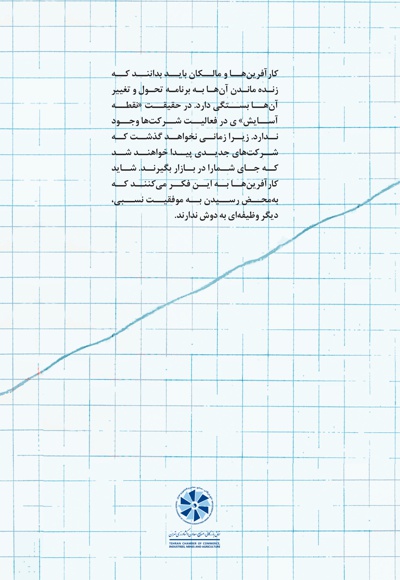 کارآفرین‌ها و مالکان باید بدانند که
زنده ماندن آن‌ها به برنامه تحول و تغییر
آن‌ها بستگی دارد. در حقیقت «نقطه
آسایش» ی در فعالیت شرکت‌ها وجود
ندارد. زیرا زمانی نخواهد گذشت که
شرکت‌های جدیدی پیدا خواهند شد
که جای شمارا در بازار بگیرند. شاید
کارآفرین‌ها به این فکر می‌کنند که
به‌محض رسیدن به موفقیت نسبی،
دیگر وظیفه‌ای به دوش ندارند.
TEHRAN CHAMBER OF COMMERCE,
INDUSTRIES, MINES AND AGRICULTURE